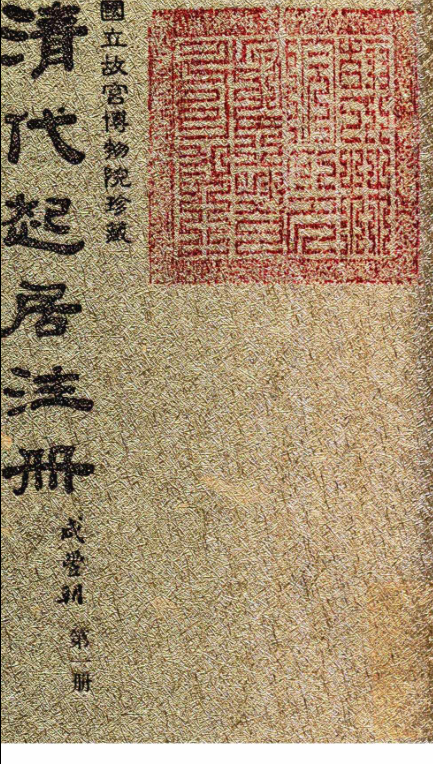 國立故宮博物院珍藏
清代起居注冊
咸豐朝 第一册